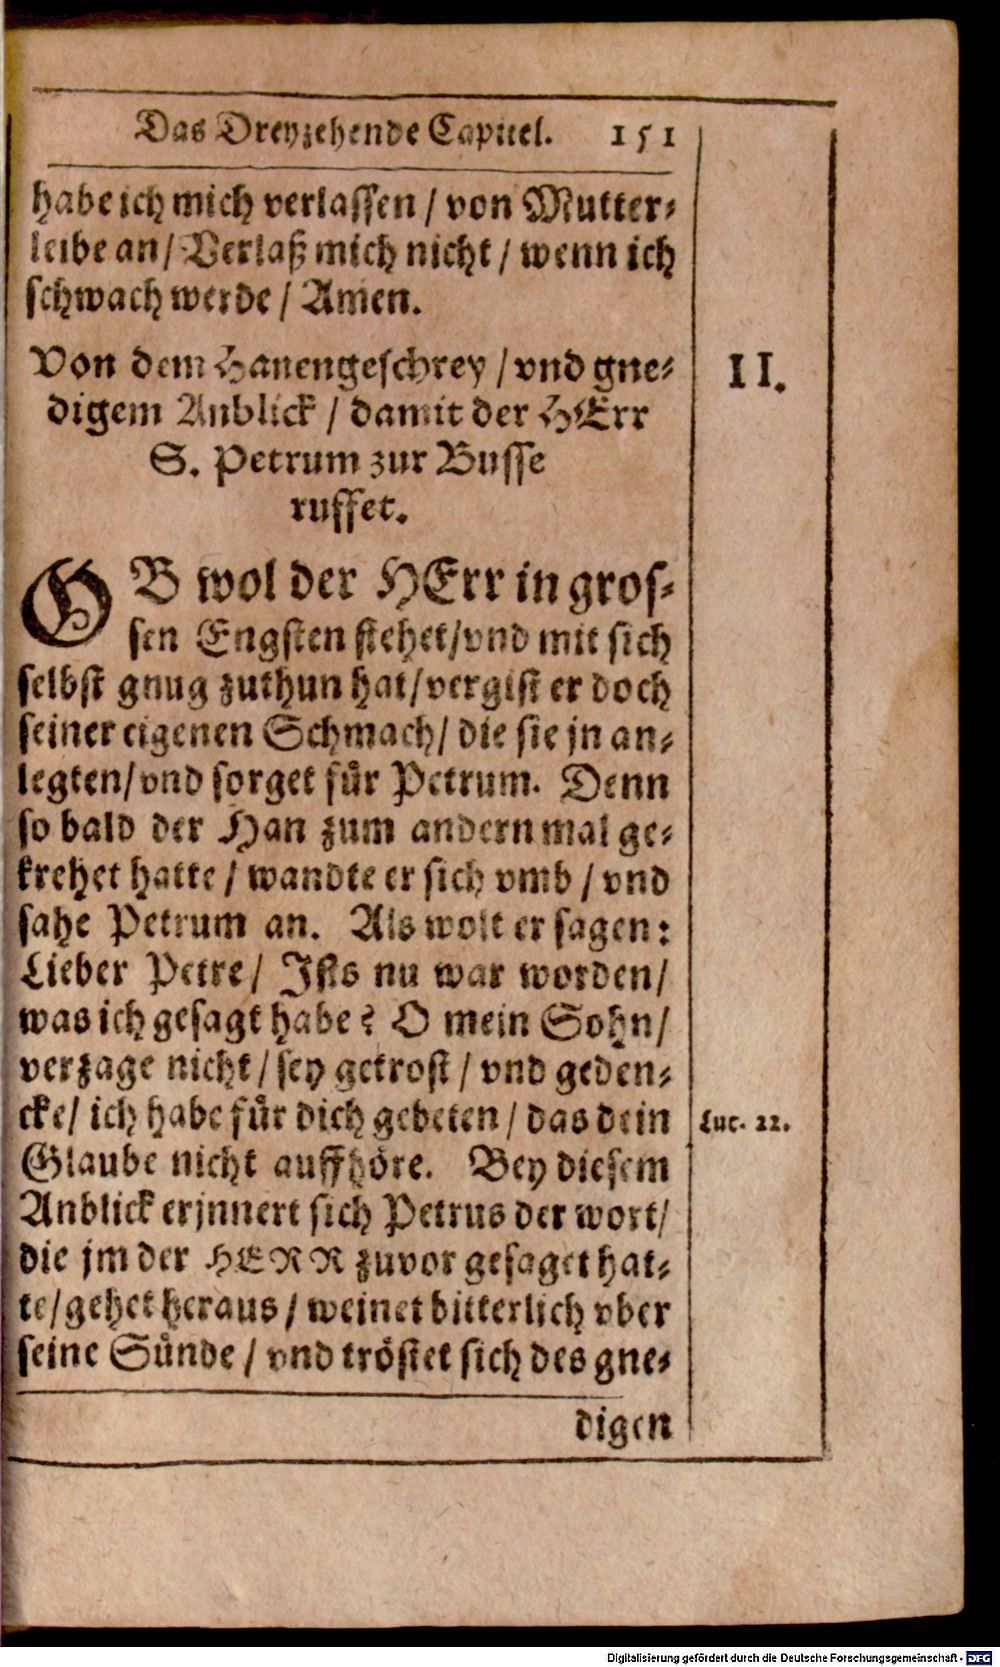 Das Dreyzehende Capitel. 151
habe ich mich verlassen / von Mutter-
leibe an / Verlaß mich nicht / wenn ich
schwach werde / Amen.
Von dem Hanengeschrey / vnd gne-
digem Anblick / damit der HErr
S. Petrum zur Busse
ruffet.
II.
OB wol der HErr in gros-
sen Engsten stehet / vnd mit sich
selbst gnug zuthun hat / vergist er doch
seiner eigenen Schmach / die sie jn an-
legten / vnd sorget fuͤr Petrum. Denn
so bald der Han zum andern mal ge-
krehet hatte / wandte er sich vmb / vnd
sahe Petrum an. Als wolt er sagen:
Lieber Petre / Ists nu war worden /
was ich gesagt habe? O mein Sohn /
verzage nicht / sey getrost / vnd geden-
cke / ich habe fuͤr dich gebeten / das dein
Luc. 22.
Glaube nicht auffhöre. Bey diesem
Anblick erjnnert sich Petrus der wort /
die jm der HERR zuvor gesaget hat-
te / gehet heraus / weinet bitterlich vber
seine Suͤnde / vnd tröstet sich des gne-
digen
Digitalisierung gefördert durch die Deutsche Forschungsgemeinschaft - DFG